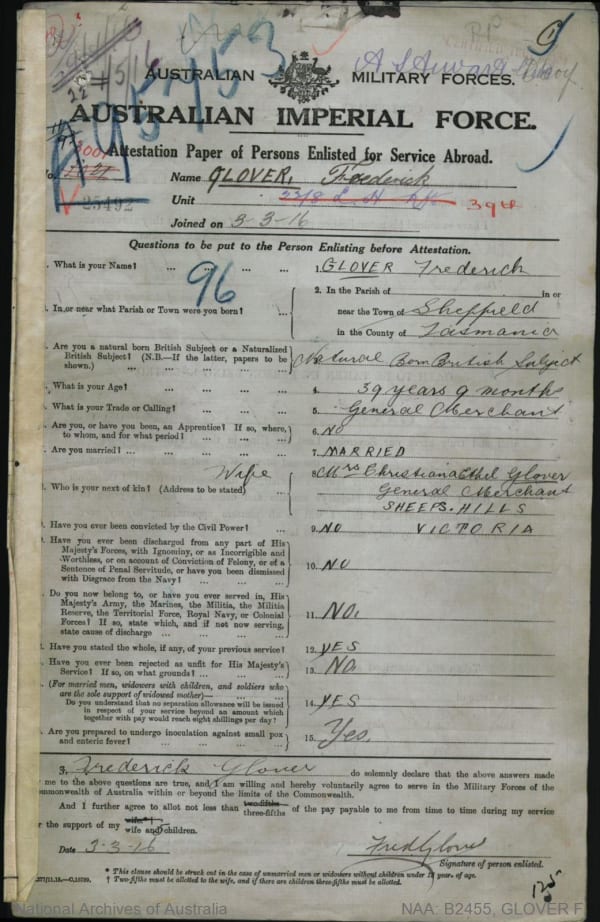 AUSTRALIAN MILITARY FORCES.
AUSTRALIAN IMPERIAL FORCE.
Attestation Paper of Persons Enlisted for Service Abroad.
Name GLOVER, Frederick
25492 Unit 39th
Joined on 3-3-16
Questions to be put to the Person Enlisting before Attestation.
96
. What is your Name? ... ... ... ... 1. GLOVER Frederick
. In or near what Parish or Town were you born? ... 2. In the Parish of in or
near the Town of Sheffield
in the County of Tasmania
. Are you a natural born British Subject or a Naturalized British Subject? (N.B.—If the latter, papers to be shown.) ... ... Natural Born British Subject
. What is your Age? ... ... ... ... 4. 39 years 9 months
. What is your Trade or Calling? ... ... ... 5. General Merchant
. Are you, or have you been, an Apprentice? If so, where, to whom, and for what period? ... ... 6. NO
. Are you married? ... ... ... ... 7. MARRIED
. Who is your next of kin? (Address to be stated) ... Wife 8. Mrs Christiana Ethel Glover
General Merchant
SHEEP-HILLS
VICTORIA
. Have you ever been convicted by the Civil Power? ... 9. NO
. Have you ever been discharged from any part of His Majesty's Forces, with Ignominy, or as Incorrigible and Worthless, or on account of Conviction of Felony, or of a Sentence of Penal Servitude, or have you been dismissed with Disgrace from the Navy? ... ... 10. NO
. Do you now belong to, or have you ever served in, His Majesty's Army, the Marines, the Militia, the Militia Reserve, the Territorial Force, Royal Navy, or Colonial Forces? If so, state which, and if not now serving, state cause of discharge ... ... ... 11. NO.
. Have you stated the whole, if any, of your previous service? 12. YES
. Have you ever been rejected as unfit for His Majesty's Service? If so, on what grounds? ... ... 13. NO.
. (For married men, widowers with children, and soldiers who are the sole support of widowed mother)—
Do you understand that no separation allowance will be issued in respect of your service beyond an amount which together with pay would reach eight shillings per day? 14. YES
. Are you prepared to undergo inoculation against small pox and enteric fever? ... ... ... 15. Yes.
3, Frederick Glover do solemnly declare that the above answers made
me to the above questions are true, and I am willing and hereby voluntarily agree to serve in the Military Forces of the
Commonwealth of Australia within or beyond the limits of the Commonwealth.
And I further agree to allot not less than two-fifths three-fifths of the pay payable to me from time to time during my service
r the support of my wife*† wife and children.
Date 3-3-16 Fred Glover
Signature of person enlisted.
* This clause should be struck out in the case of unmarried men or widowers without children under 18 years of age.
† Two-fifths must be allotted to the wife, and if there are children three-fifths must be allotted.
National Archives of Australia NAA: B2455, GLOVER F